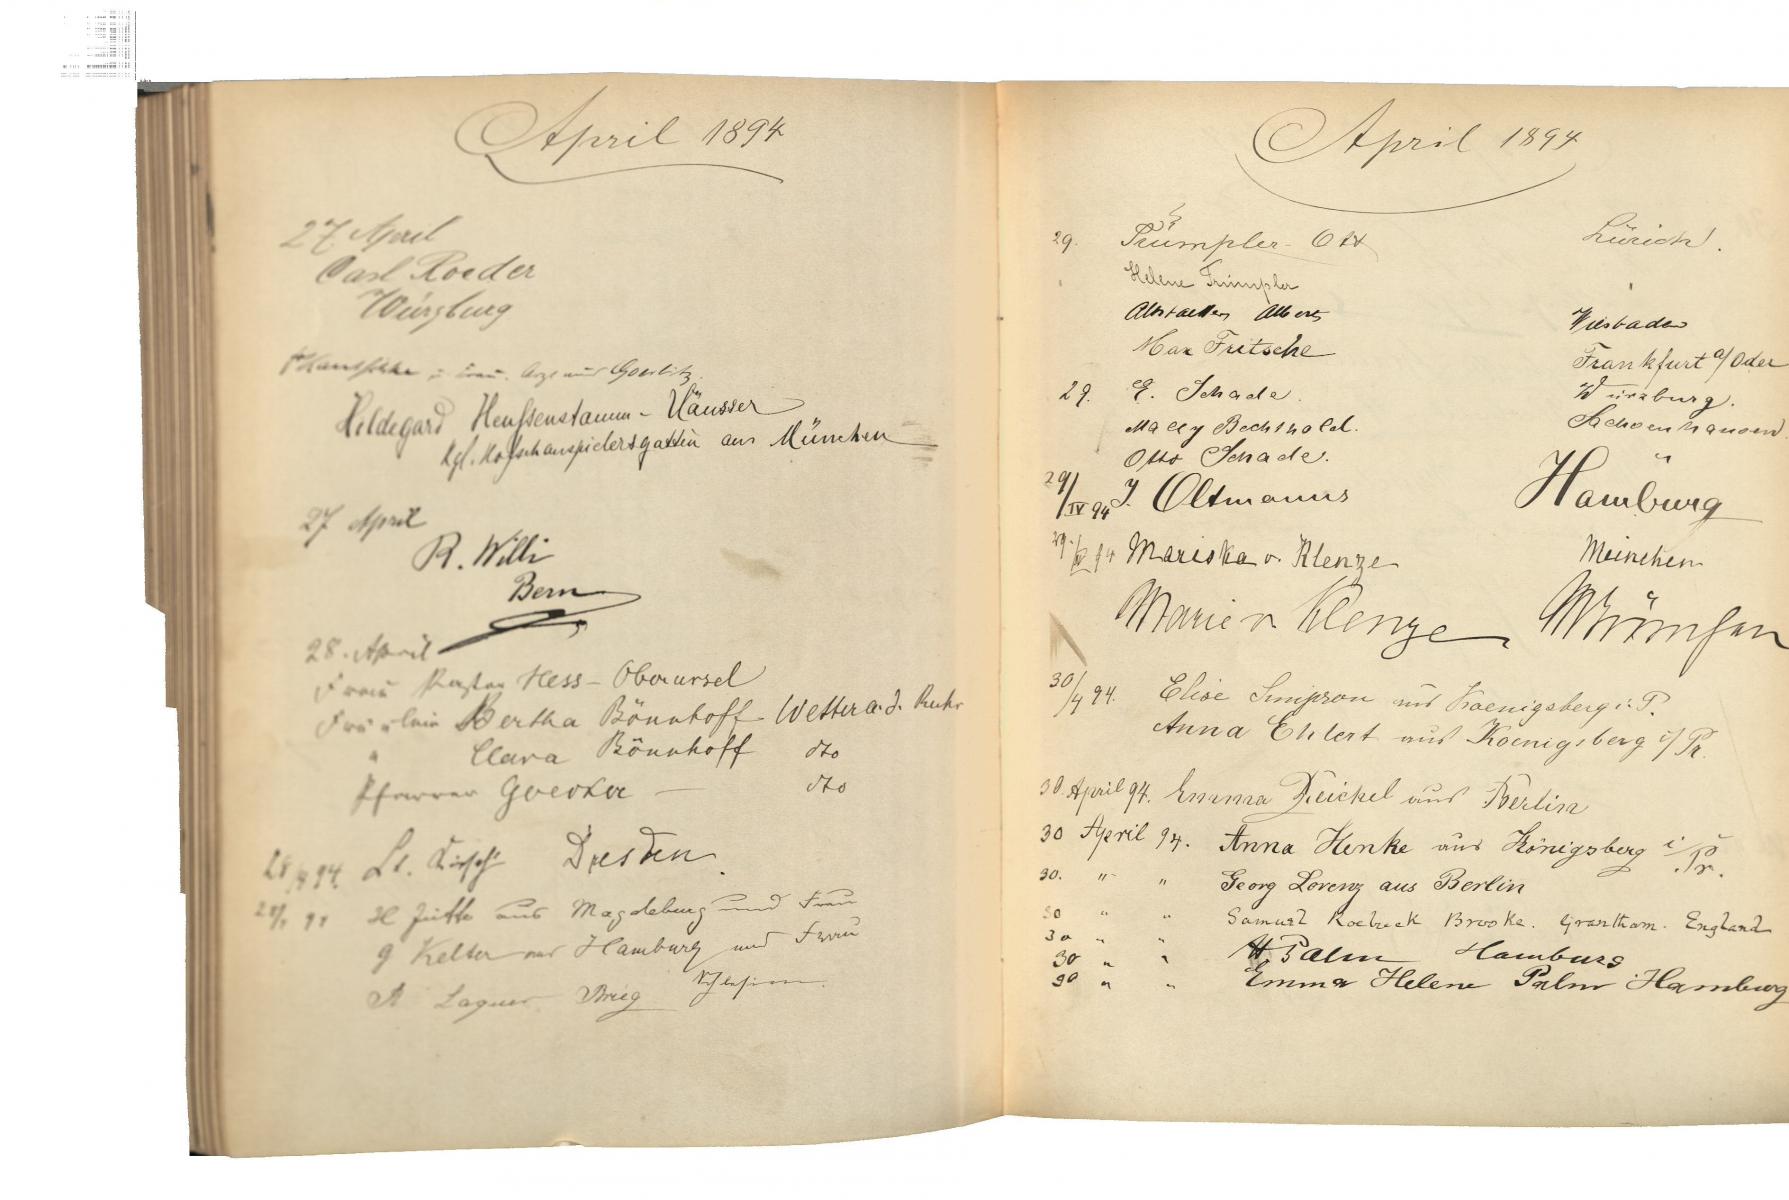 April 1894
27 April
Carl Roeder
Würzburg
Frau. Arzt aus Goerlitz.
Hildegard Heußenstamm - Häusser
Kgl. Hofschauspielersgattin aus München
27 April
R. Willi
Bern
28. April
Frau Pastor Hess - Oberursel
Fräulein Bertha Bönnhoff Wetter a. d. Ruhr
" Clara Bönnhoff dto
Pfarrer dto
28/4 94. Lt. Dresden
H aus Magdeburg und Frau
g Kelter aus Hamburg und Frau
A Brieg Schlesien.
April 1894
29. Trümpler - Ott Zürich.
Helene Trümpler "
Albert Wiesbaden
Max Fritsche Frankfurt a/Oder
29. E. Schade. Würzburg.
Mally Bechthold. Sachsenhausen
Otto Schade. "
29/IV 94 J. Oltmanns Hamburg
29./IV 94 Mariska v. Klenze München
Marie v. Klenze München
30/4 94. Elise Simpson aus Koenigsberg i. P.
Anna Ehlert aus Koenigsberg i/Pr.
30. April 94. Emma aus Berlin
30 April 94. Anna Henke aus Königsberg i/Pr.
30. " " Georg Lorenz aus Berlin
30 " " Samuel Roebuck Brooke. Grantham. England
30 " "
30 " " H Palm Hamburg
30 " " Emma Helene Palm Hamburg